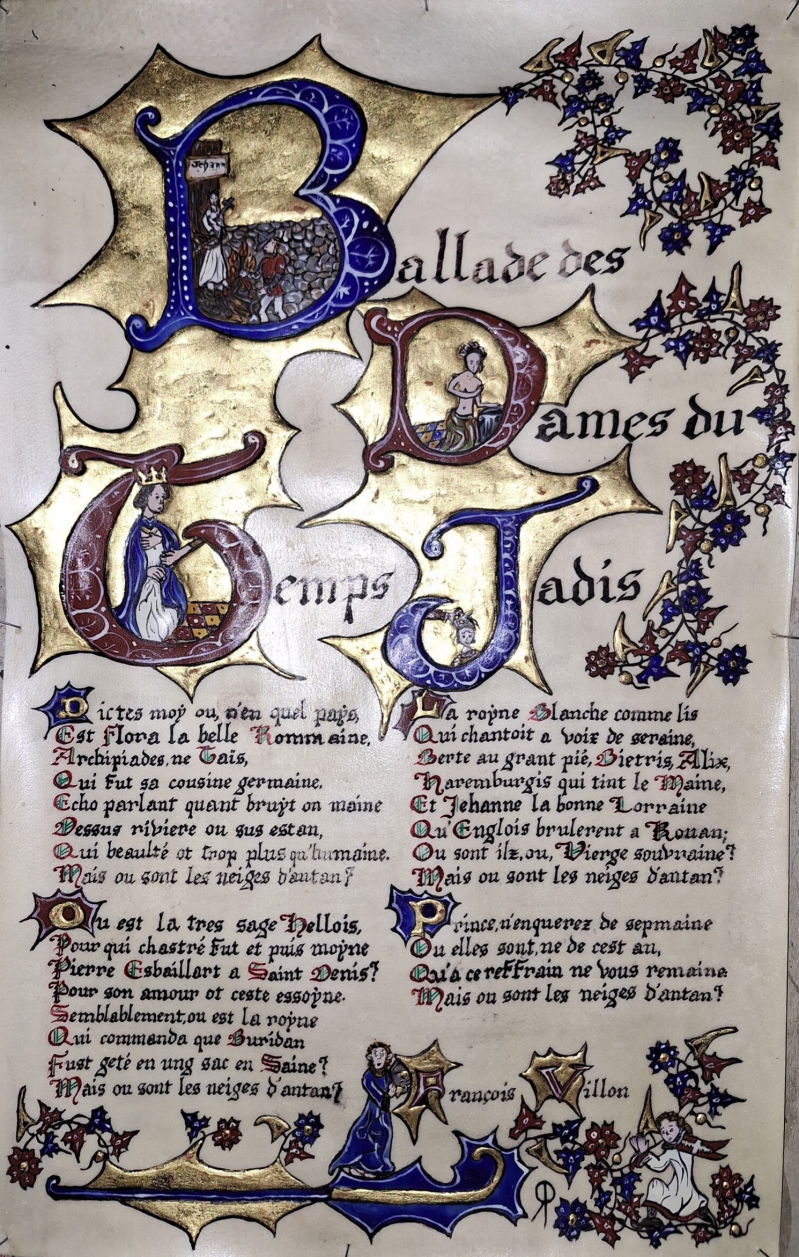 Jehann
Ballade des
Dames du
Temps Jadis
Dictes moy ou, n'en quel pays,
Est Flora la belle Rommaine,
Archipiades, ne Taïs,
Qui fut sa cousine germaine,
Echo parlant quant bruyt on maine
Dessus riviere ou sus estan,
Qui beaulté ot trop plus qu'humaine.
Mais ou sont les neiges d'antan?
Ou est la tres sage Hellois,
Pour qui chastré fut et puis moyne
Pierre Esbaillart a Saint Denis?
Pour son amour ot ceste essoyne.
Semblablement, ou est la royne
Qui commanda que Buridan
Fust geté en ung sac en Saine?
Mais ou sont les neiges d'antan?
La royne Blanche comme lis
Qui chantoit a voix de seraine,
Berte au grant pié, Bietris, Alix,
Haremburgis qui tint le Maine,
Et Jehanne la bonne Lorraine
Qu'Englois brulerent a Rouan;
Ou sont ilz, ou, Vierge souvraine?
Mais ou sont les neiges d'antan?
Prince, n'enquerez de sepmaine
Ou elles sont, ne de cest an,
Qu'a ce reffrain ne vous remaine
Mais ou sont les neiges d'antan?
François Villon